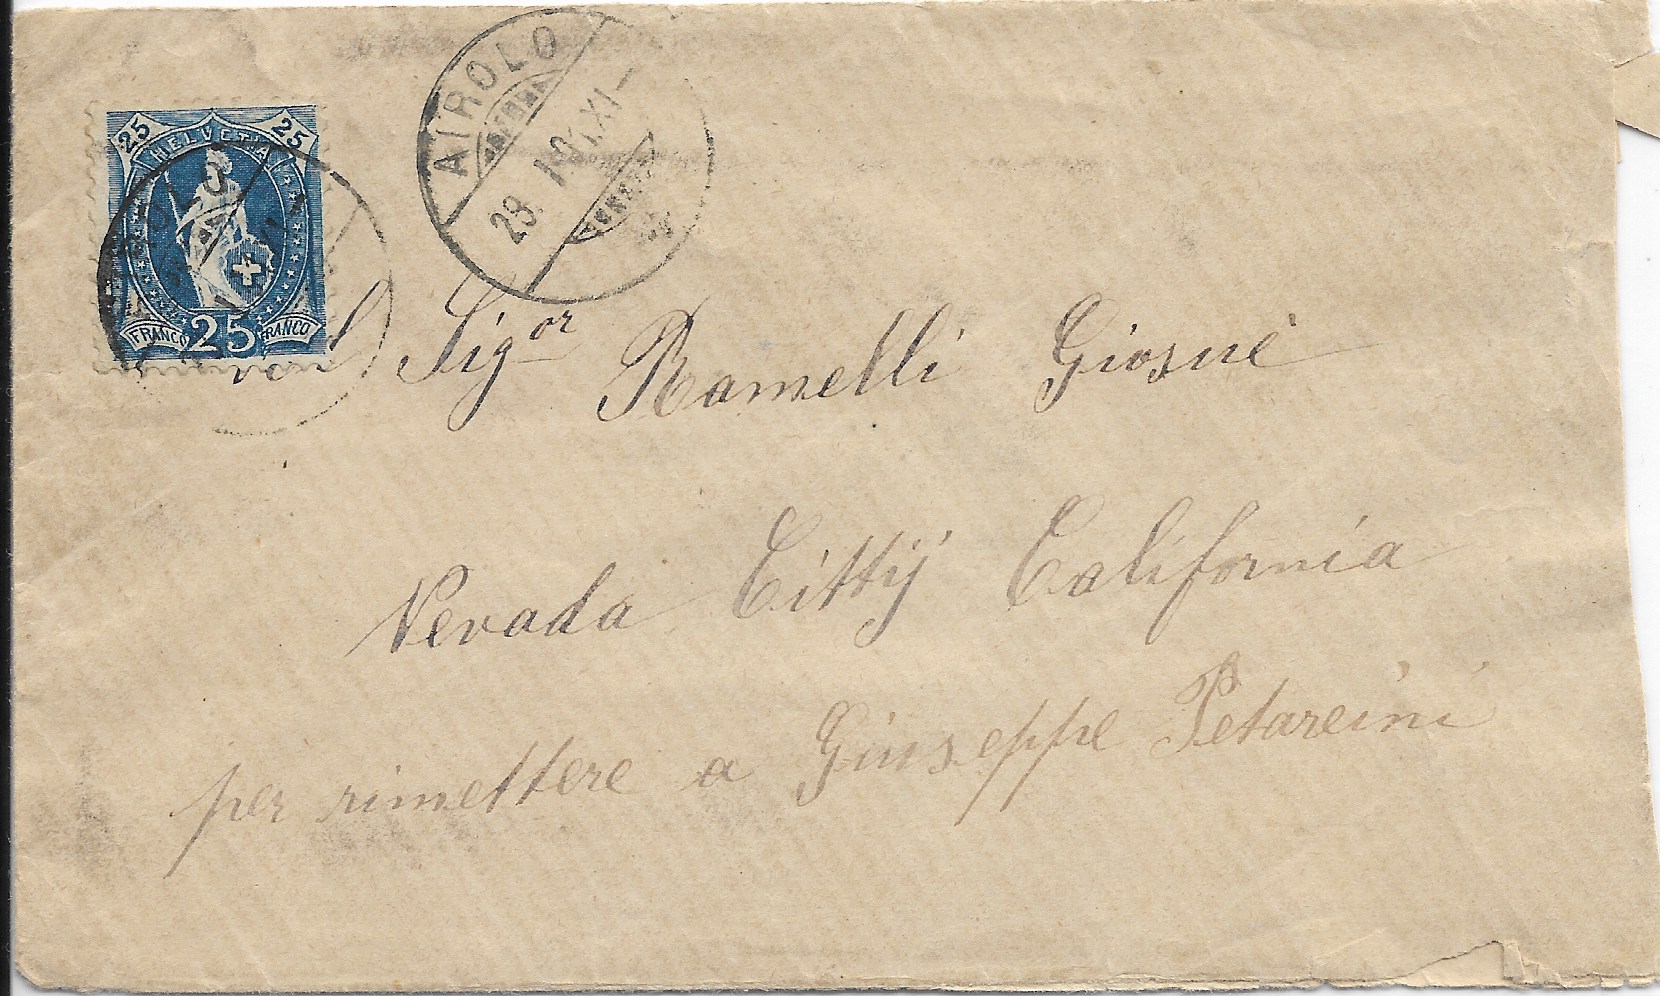 25 25
HELVETIA
FRANCO 25 FRANCO
AIROLO
29. I.01.XI-
Sig.or Ramelli Giosuè
Nevada Cittÿ California
per rimettere a Giuseppe Petareini